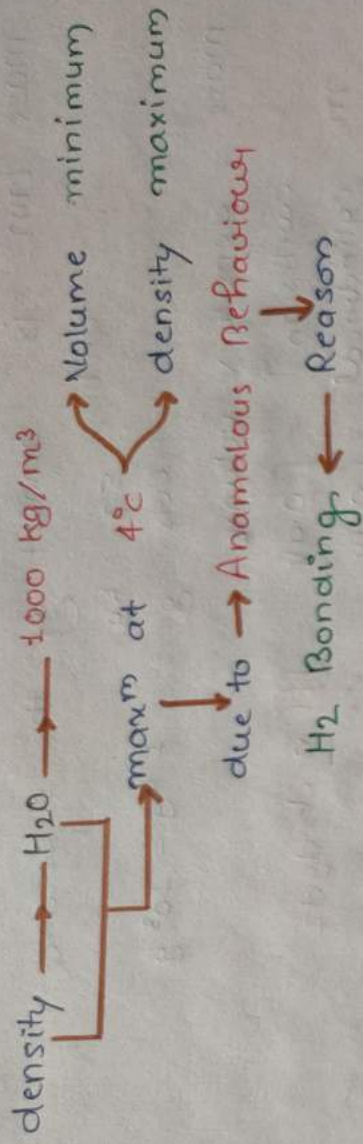 density → H2O → 1000 kg/m³
maxᵐ at 4°c
Volume minimum
density maximum
due to → Anamalous Behaviour
H2 Bonding ← Reason